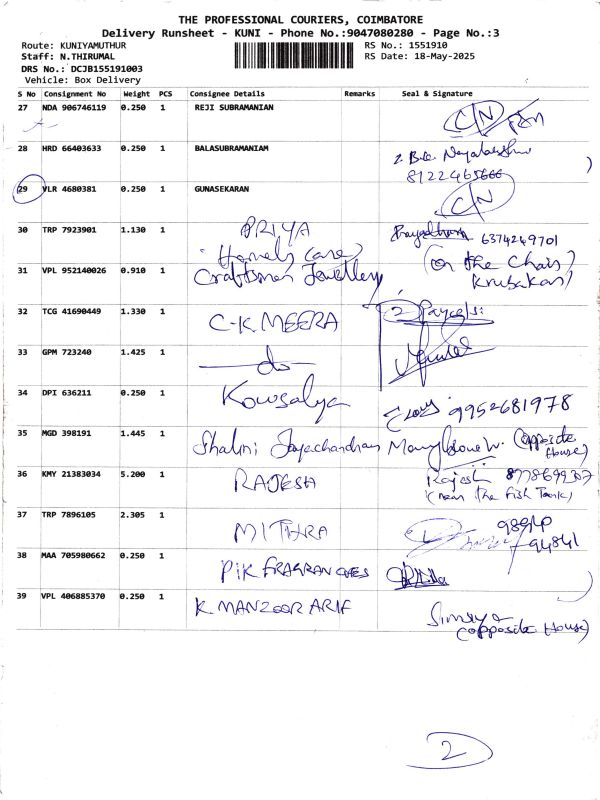 THE PROFESSIONAL COURIERS, COIMBATORE
Delivery Runsheet - KUNI - Phone No.:9047080280 - Page No.:3
Route: KUNIYAMUTHUR
RS No.: 1551910
Staff: N.THIRUMAL
RS Date: 18-May-2025
DRS No.: DCJB155191003
Vehicle: Box Delivery
S No Consignment No Weight PCS Consignee Details Remarks Seal & Signature
27 NDA 906746119 0.250 1 REJI SUBRAMANIAN C/N
28 HRD 66403633 0.250 1 BALASUBRAMANIAM
8122465666
29 VLR 4680381 0.250 1 GUNASEKARAN C/N
30 TRP 7923901 1.130 1 PRIYA 6374249701
(Homely care) (on the chair)
31 VPL 952140026 0.910 1 Craftsman Jewellery Krubakar)
32 TCG 41690449 1.330 1 C-K. MEERA 2 Parcels:
33 GPM 723240 1.425 1 do
34 DPI 636211 0.250 1 Kowsalya 9952681978
35 MGD 398191 1.445 1 Shalini Jayachandran (opposite House)
36 KMY 21383034 5.200 1 RAJESH Rajesh
(near the Fish Tank)
37 TRP 7896105 2.305 1 MITHRA 98940
94841
38 MAA 705980662 0.250 1 PIK FRAGRANCES
39 VPL 406885370 0.250 1 K MANZOOR ARIF
(opposite House)
2